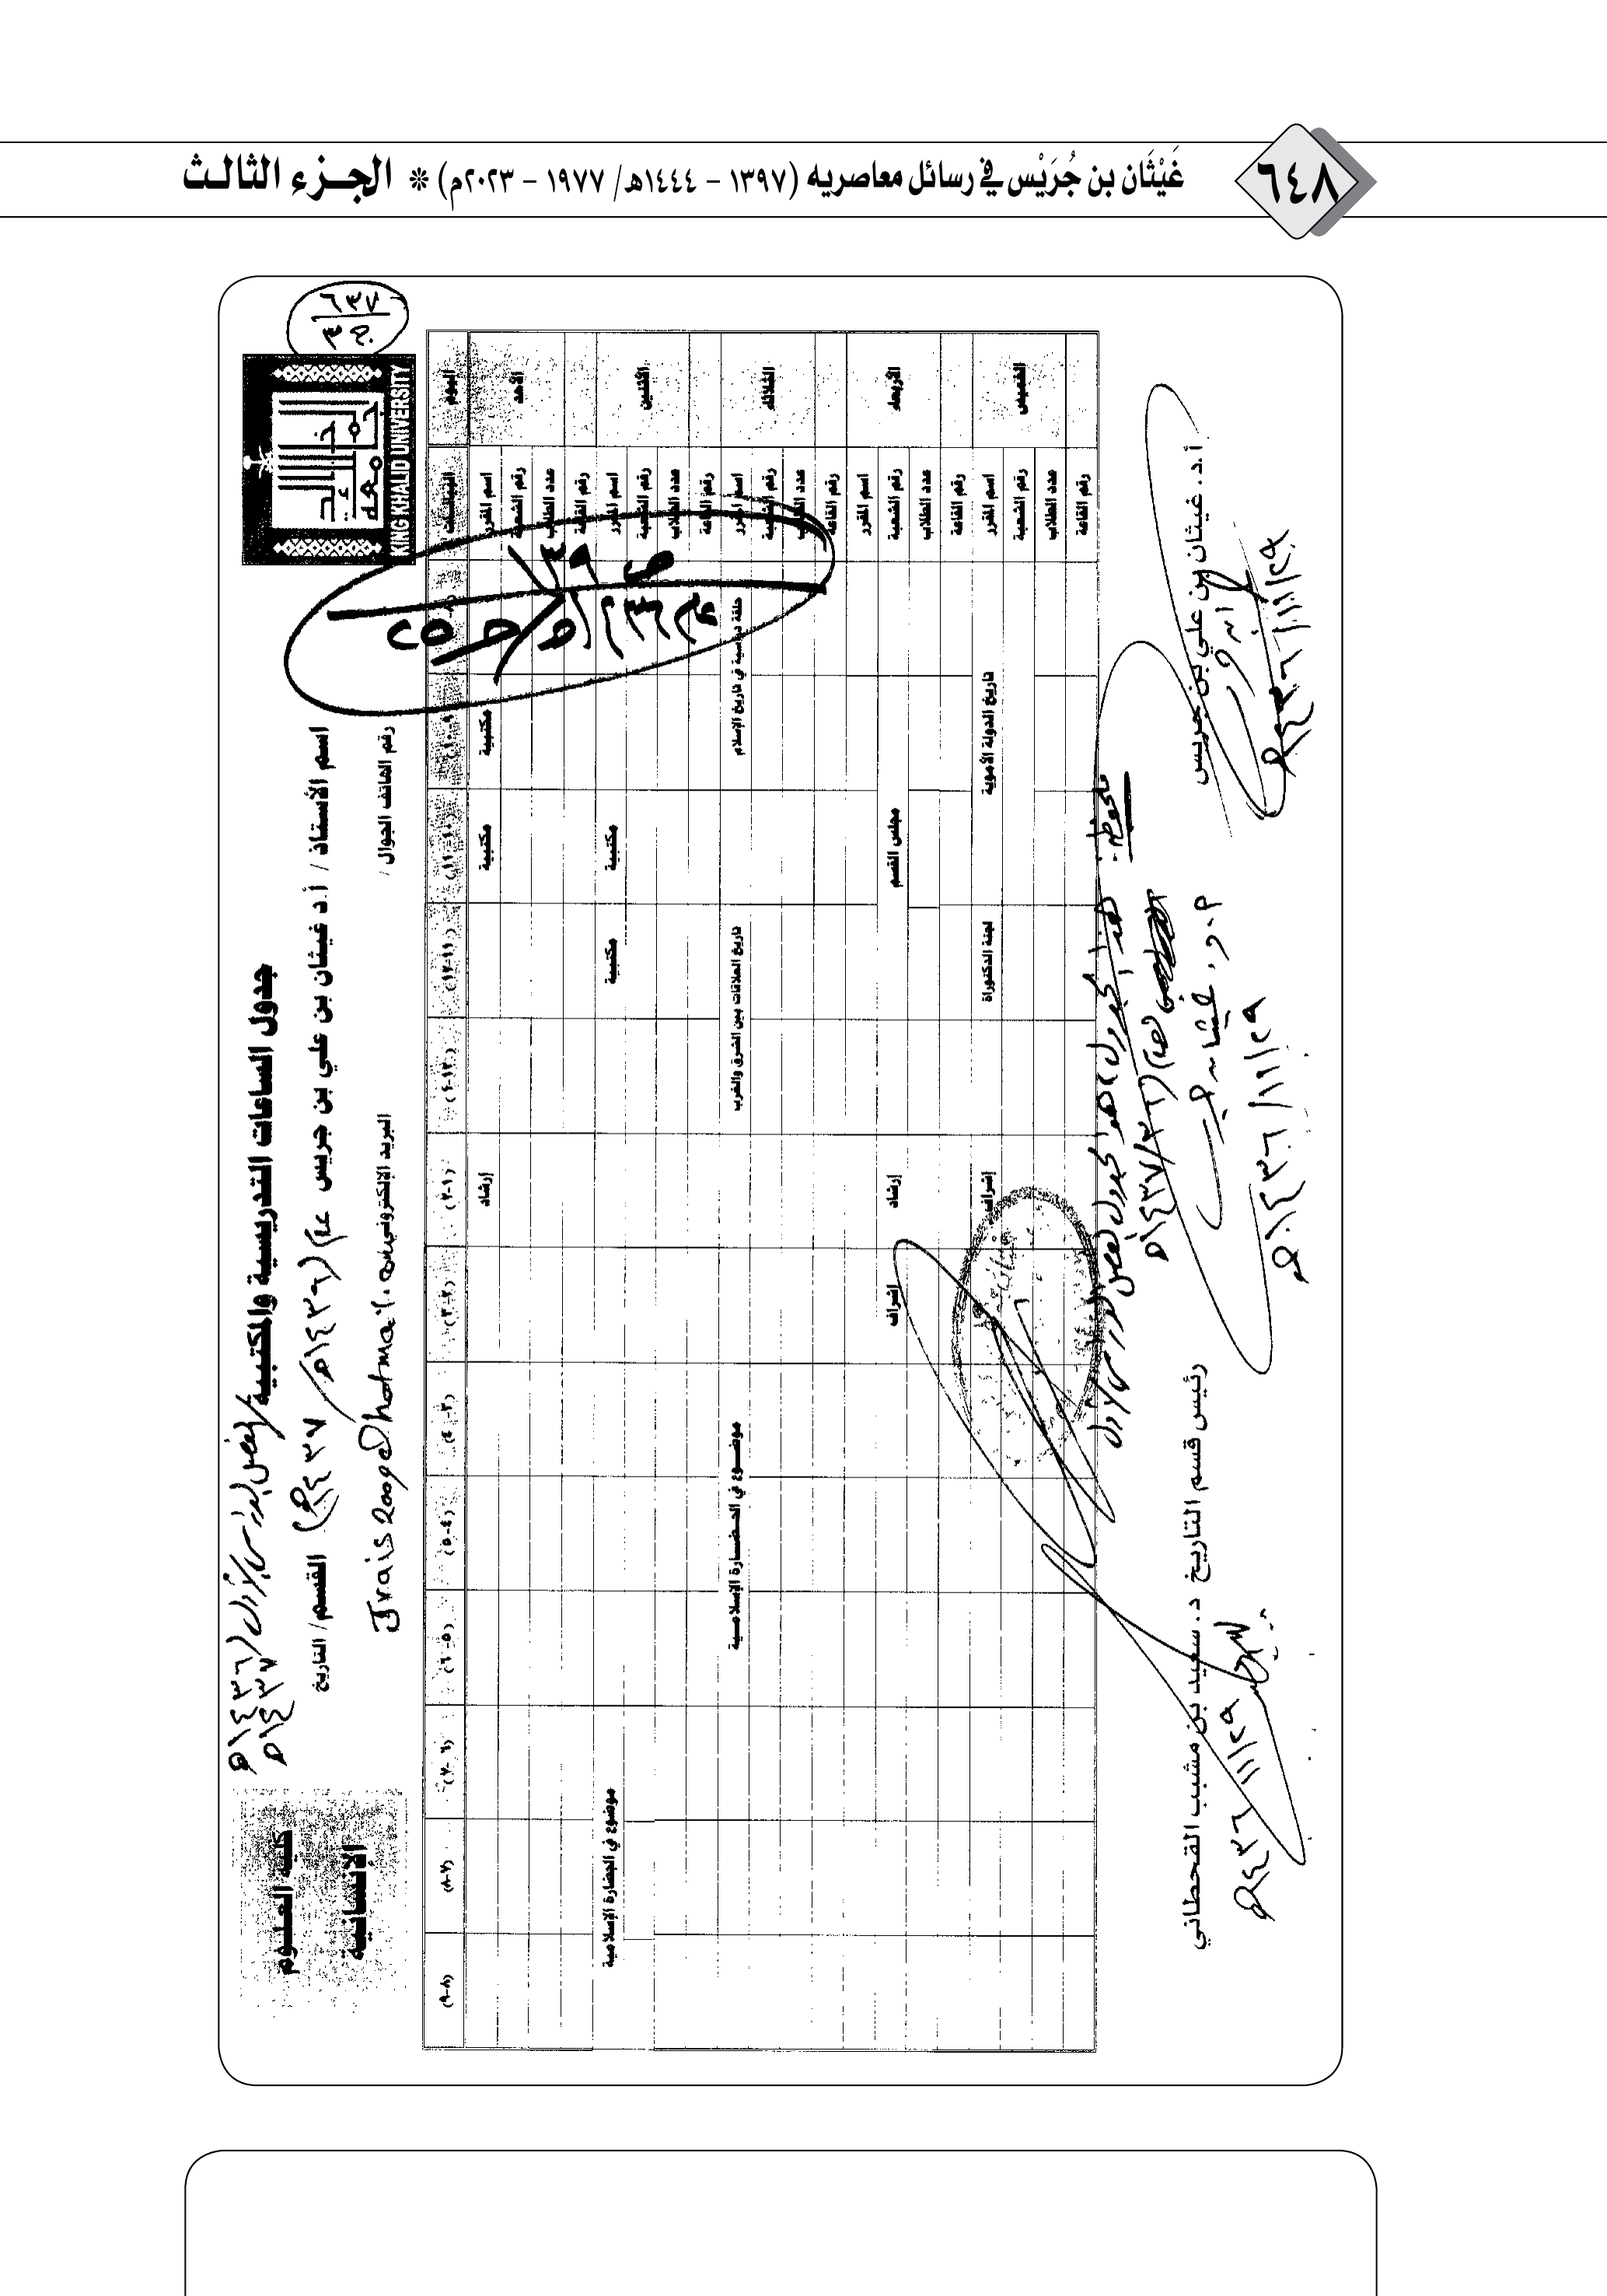 غَيْثَان بن جُرَيْس في رسائل معاصريه (١٣٩٧ - ١٤٤٤هـ/ ١٩٧٧ - ٢٠٢٣م) * الجزء الثالث
٦٤٨
٦٣٧
ج٣
جامعة الملك خالد
KING KHALID UNIVERSITY
كلية العلوم
الإنسانية
جدول الساعات التدريسية والمكتبية / الفصل الدراسي الأول / ١٤٣٦هـ
١٤٣٧هـ
اسم الأستاذ / أ.د غيثان بن علي بن جريس عام (١٤٣٦هـ / ١٤٣٧هـ) القسم / التاريخ
رقم الهاتف الجوال /
البريد الإلكتروني
Jrais2009@hotmail.com
اليوم البيانات (١٠-٩) (١١-١٠) (١٢-١١) (١-١٢) (٢-١) (٣-٢) (٤-٣) (٥-٤) (٦-٥) (٧-٦) (٨-٧) (٩-٨)
الأحد
اسم المقرر مكتبية مكتبية إرشاد
رقم الشعبة
عدد الطلاب
رقم القاعة
الاثنين
اسم المقرر مكتبية مكتبية موضوع في الحضارة الإسلامية
رقم الشعبة
عدد الطلاب
رقم القاعة
الثلاثاء
اسم المقرر حلقة دراسية في تاريخ الإسلام تاريخ العلاقات بين الشرق والغرب موضوع في الحضارة الإسلامية
رقم الشعبة
عدد الطلاب
رقم القاعة
الأربعاء
اسم المقرر
رقم الشعبة مجلس القسم إرشاد إشراف
عدد الطلاب
رقم القاعة
الخميس
اسم المقرر تاريخ الدولة الأموية لجنة الدكتوراة إشراف
رقم الشعبة
عدد الطلاب
رقم القاعة
ملحوظة:
هذا الجدول هو الجدول الفصل الدراسي الأول
١٤٣٧/٣٦هـ
أ.د. غيثان بن علي بن جريس
١٤٣٦/١١/٢٩هـ
١٤٣٦/١١/٢٩هـ
رئيس قسم التاريخ د. سعيد بن مشبب القحطاني
١٤٣٦/١١/٢٩هـ